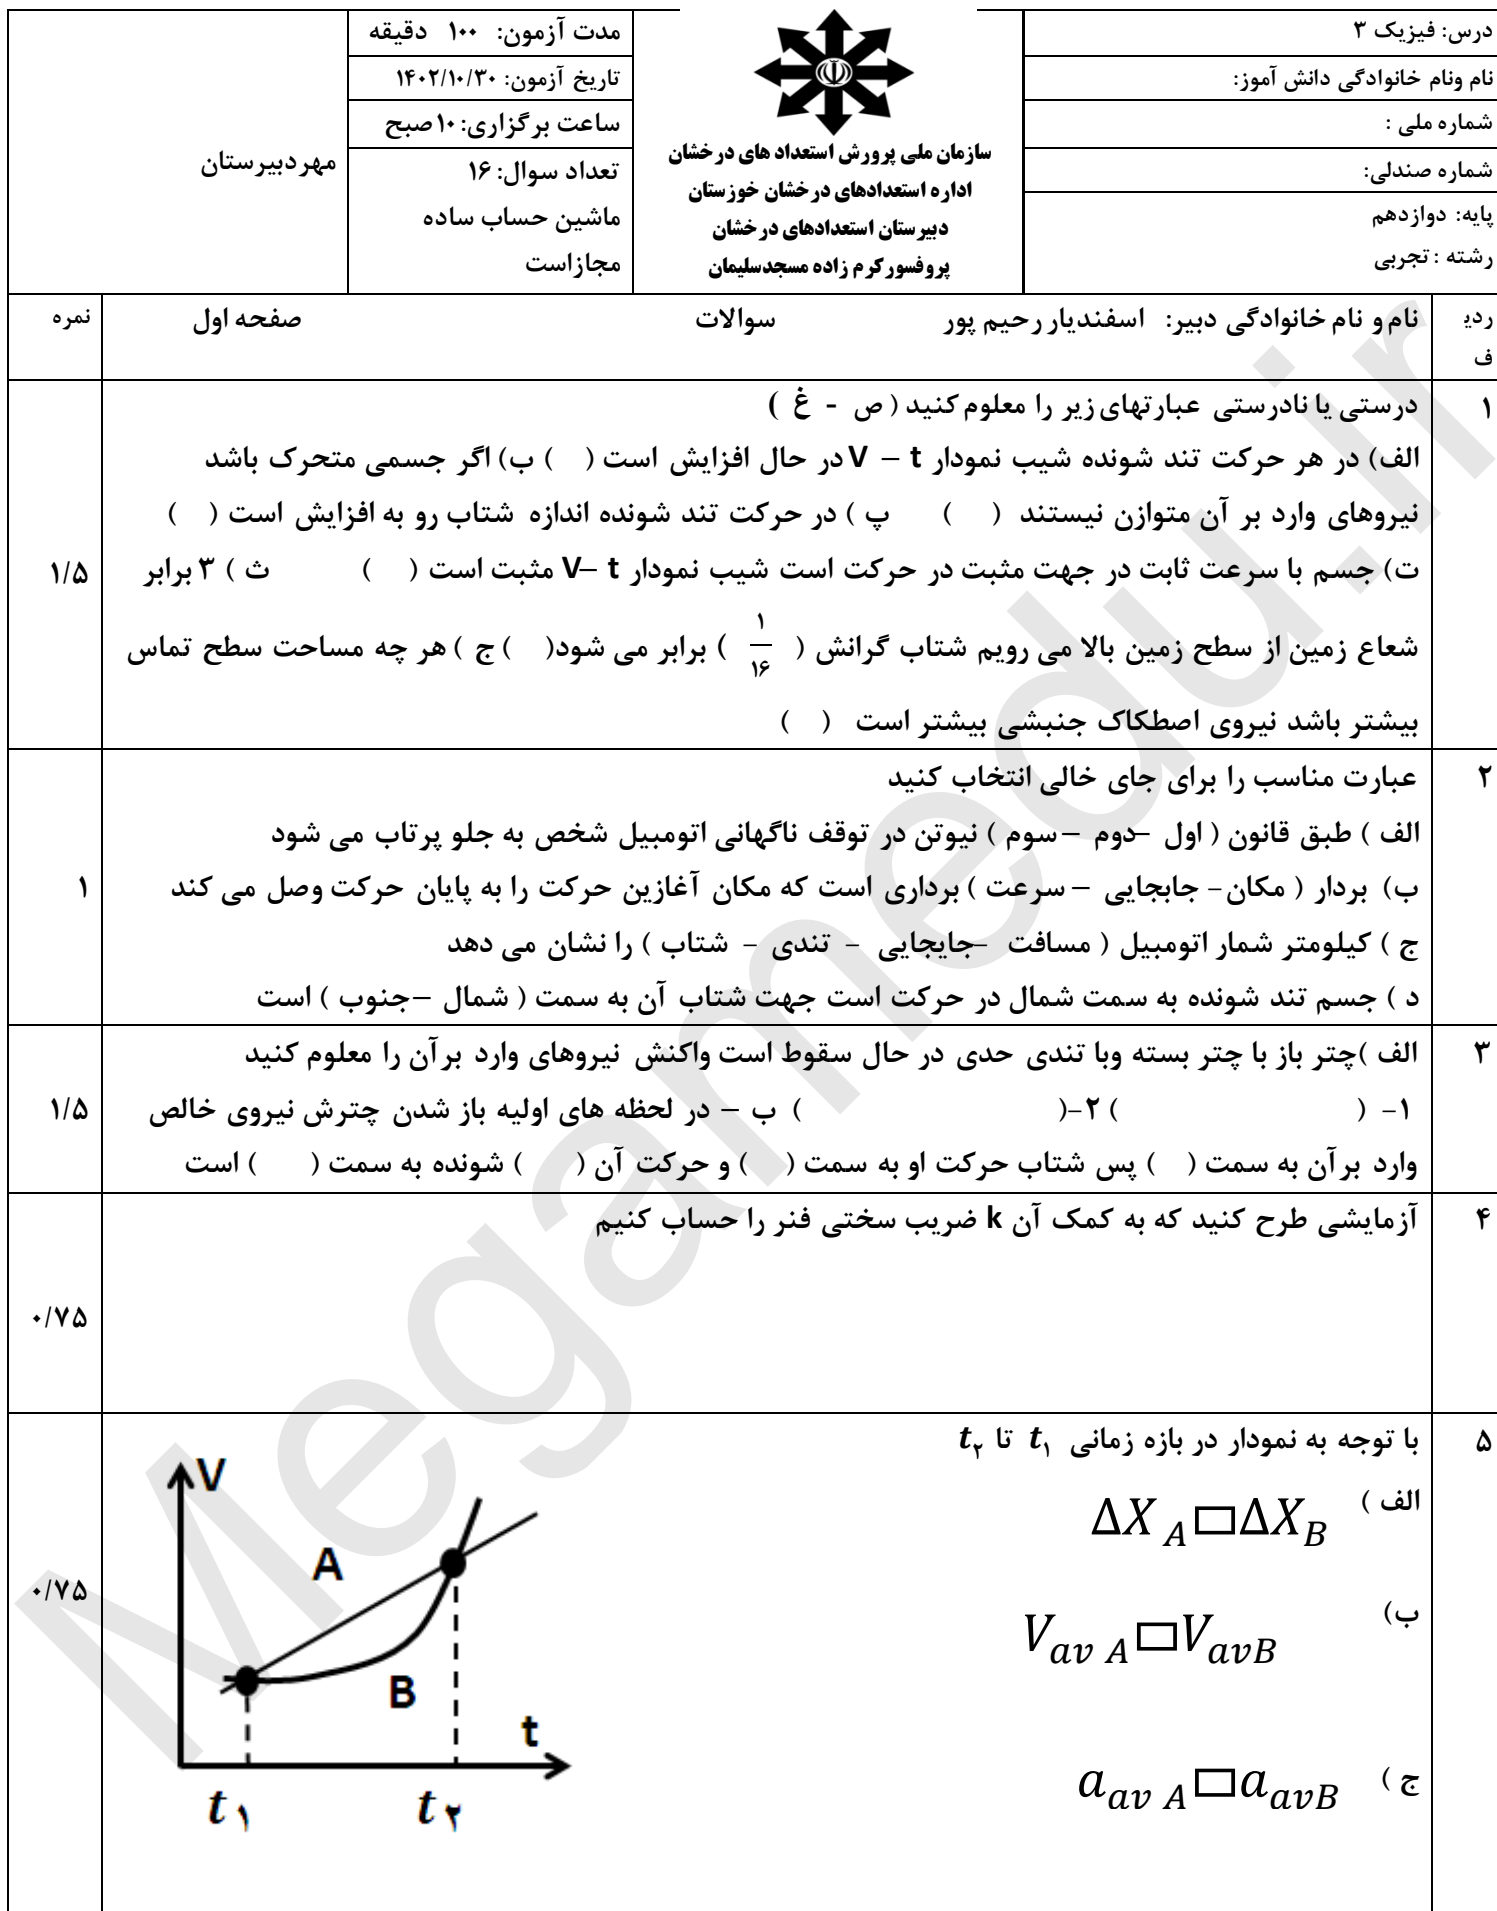 درس: فیزیک ۳
نام ونام خانوادگی دانش آموز:
شماره ملی :
شماره صندلی:
پایه: دوازدهم
رشته : تجربی
سازمان ملی پرورش استعداد های درخشان
اداره استعدادهای درخشان خوزستان
دبیرستان استعدادهای درخشان
پروفسور کرم زاده مسجدسلیمان
مدت آزمون: ۱۰۰ دقیقه
تاریخ آزمون: ۱۴۰۲/۱۰/۳۰
ساعت برگزاری: ۱۰صبح
تعداد سوال: ۱۶
ماشین حساب ساده
مجازاست
مهردبیرستان
ردی
ف
نام و نام خانوادگی دبیر: اسفندیار رحیم پور سوالات صفحه اول
نمره
۱
درستی یا نادرستی عبارتهای زیر را معلوم کنید ( ص - غ )
الف) در هر حرکت تند شونده شیب نمودار V – t در حال افزایش است ( ) ب) اگر جسمی متحرک باشد
نیروهای وارد بر آن متوازن نیستند ( ) پ ) در حرکت تند شونده اندازه شتاب رو به افزایش است ( )
ت) جسم با سرعت ثابت در جهت مثبت در حرکت است شیب نمودار V– t مثبت است ( ) ث ) ۳ برابر
شعاع زمین از سطح زمین بالا می رویم شتاب گرانش ( ۱/۱۶ ) برابر می شود( ) ج ) هر چه مساحت سطح تماس
بیشتر باشد نیروی اصطکاک جنبشی بیشتر است ( )
۱/۵
۲
عبارت مناسب را برای جای خالی انتخاب کنید
الف ) طبق قانون ( اول –دوم – سوم ) نیوتن در توقف ناگهانی اتومبیل شخص به جلو پرتاب می شود
ب) بردار ( مکان- جابجایی – سرعت ) برداری است که مکان آغازین حرکت را به پایان حرکت وصل می کند
ج ) کیلومتر شمار اتومبیل ( مسافت –جایجایی - تندی - شتاب ) را نشان می دهد
د ) جسم تند شونده به سمت شمال در حرکت است جهت شتاب آن به سمت ( شمال –جنوب ) است
۱
۳
الف )چتر باز با چتر بسته وبا تندی حدی در حال سقوط است واکنش نیروهای وارد برآن را معلوم کنید
۱- ( ) ۲-( ) ب – در لحظه های اولیه باز شدن چترش نیروی خالص
وارد برآن به سمت ( ) پس شتاب حرکت او به سمت ( ) و حرکت آن ( ) شونده به سمت ( ) است
۱/۵
۴
آزمایشی طرح کنید که به کمک آن k ضریب سختی فنر را حساب کنیم
۰/۷۵
۵
با توجه به نمودار در بازه زمانی t₁ تا t₂
الف ) ΔX_A □ ΔX_B
ب) V_{av A} □ V_{avB}
ج ) a_{av A} □ a_{avB}
V
A
B
t
t ۱
t ۲
۰/۷۵
Megamedu.ir